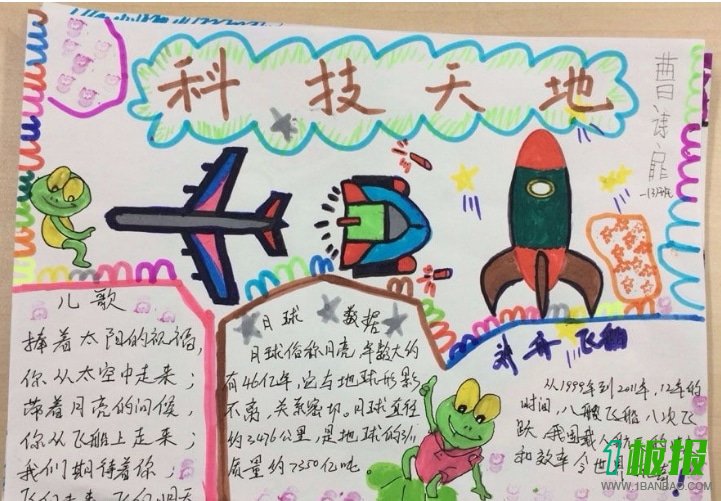 科技天地
曹诗
儿歌
捧着太阳的祝福,
你从太空中走来;
带着月亮的问候,
你从飞船上走来;
我们期待着你;
月球 数据
月球俗称月亮,年龄大约
有46亿年,它与地球形影
不离,关系密切。月球直径
约3476公里,是地球的3/11
质量约7350亿吨。
神舟飞船
从1999年到2011年,12年的
时间,八艘飞船,八次飞
跃,我国载人航
和效率令世
1板报
WWW.1BANBAO.COM